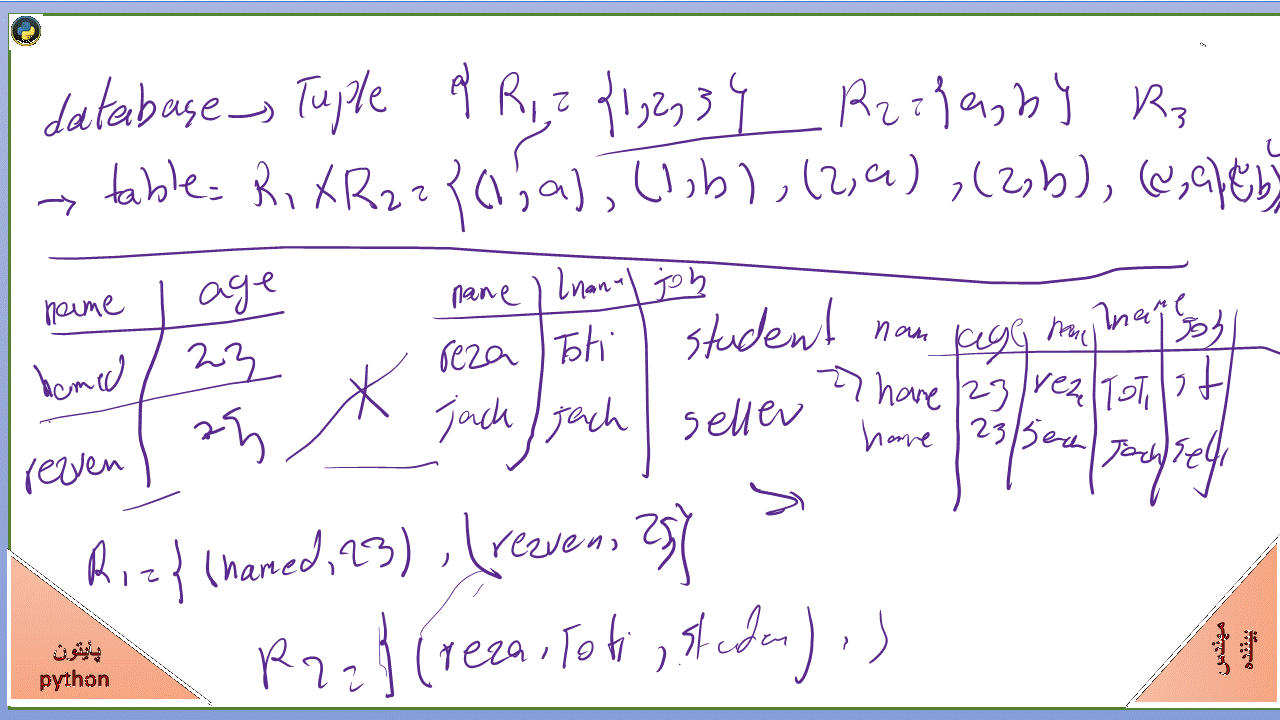 database → Tuple { R1 = {1,2,3} R2 = {a,b} R3
→ table = R1 X R2 = {(1,a), (1,b), (2,a), (2,b), (3,a), (3,b)
name age
hamed 23
rezven 25
name lname job
reza Toti student
jack jack seller
nam age name lname job
hame 23 reza ToTi st
hame 23 jack jack sell
R1 = {(hamed,23), (rezven,25)}
R2 = {(reza, Toti, studen), )
پایتون
python